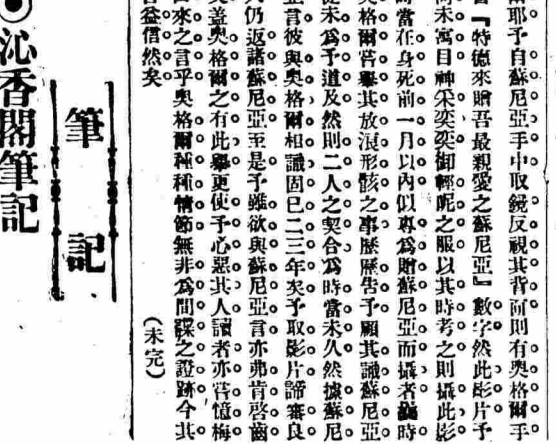 耶予自蘇尼亞手中取鏡反視其背面則有奧格爾手
書『特德來贈吾最親愛之蘇尼亞』數字然此影片予
尚未寓目神采奕奕御輕呢之服以其時考之則攝此影
時當在身死前一月以內似專爲贈蘇尼亞而攝者疇時
奧格爾嘗舉其放浪形骸之事歷歷告予顧其識蘇尼亞
從未爲予道及然則二人之契合爲時當未久然據蘇尼
亞言彼與奧格爾相識固已二三年矣予取影片諦審良
久仍返諸蘇尼亞至是予雖欲與蘇尼亞言亦弗肯啓齒
矣蓋奧格爾之有此舉更使予心惡其人讀者亦嘗憶梅
來之言乎奧格爾種種情節無非爲間諜之證跡今其
言益信然矣
(未完)
筆記
沁香閣筆記